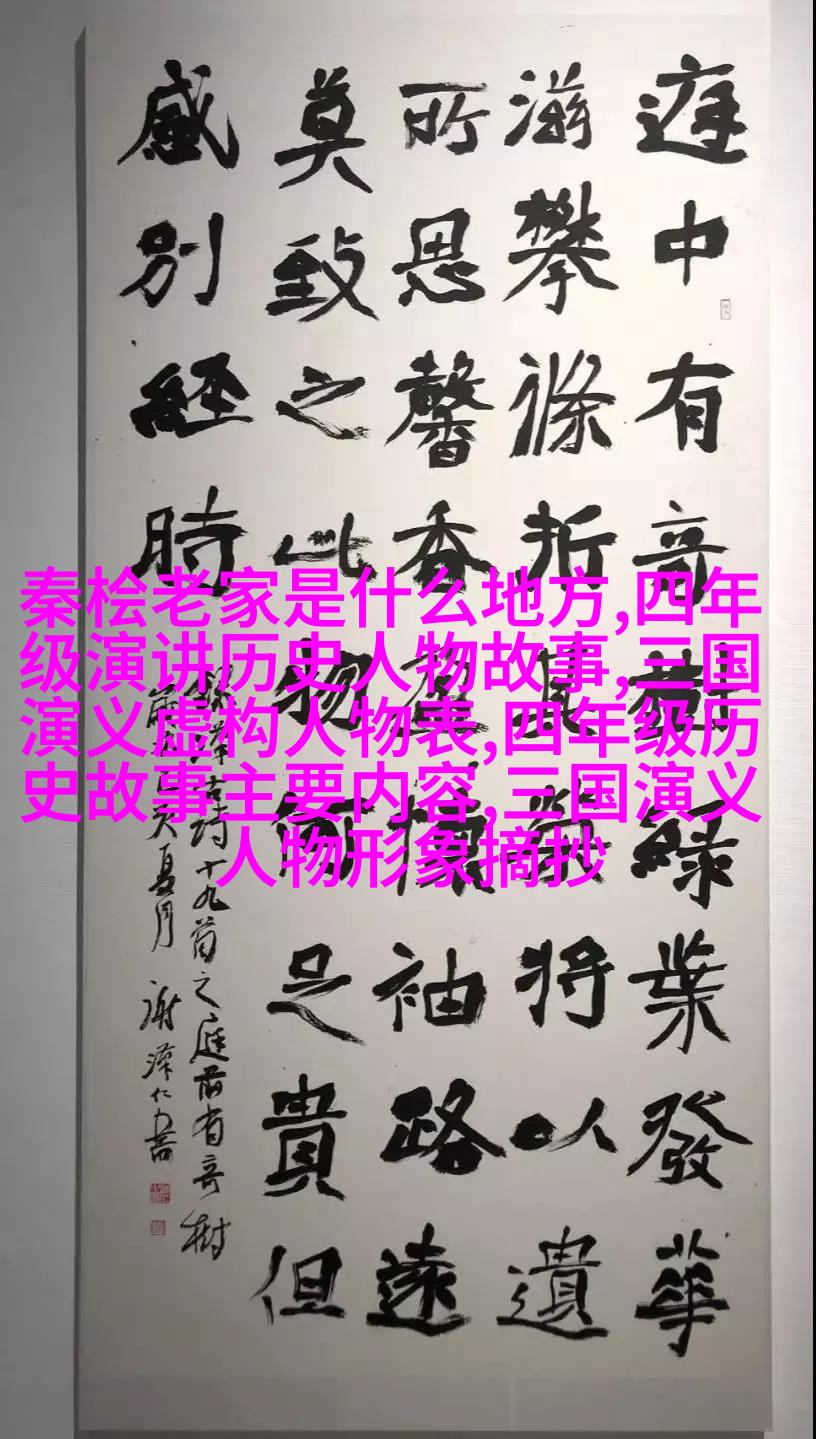 庭中有奇樹緑葉發華
滋攀條折其榮將以遺
所思馨香盈懷袖路遠
莫致之此物何足貴但
感別經時
古詩十九首之庭前有奇樹
亥夏月 謝澤仁書
秦桧老家是什么地方,四年
级演讲历史人物故事,三国
演义虚构人物表,四年级历
史故事主要内容,三国演义
人物形象摘抄